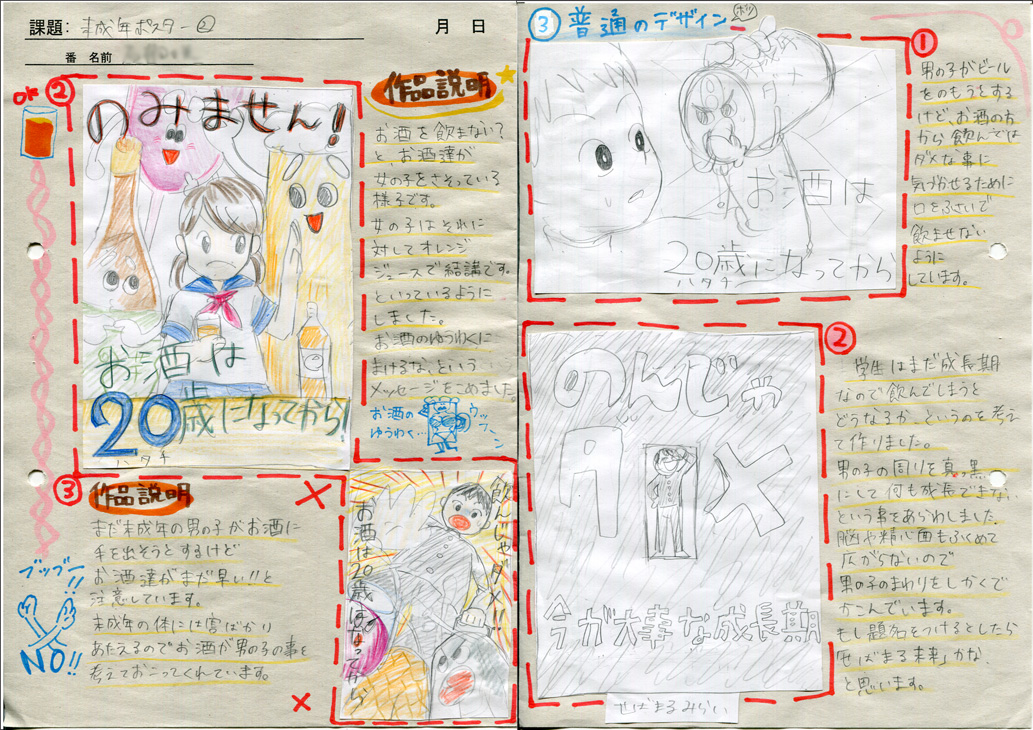 課題: 未成年ポスター②
月 日
番 名前
OK
②
のみません!
お酒は
20歳になってから!
ハタチ
作品説明
お酒を飲まない?
と、お酒達が
女の子をさそっている
様子です。
女の子はそれに
対してオレンジ
ジュースで結講です。
といっているように
しました。
お酒のゆうわくに
まけるな、という
メッセージをこめました。
お酒の
ゆうわく…
ウッフーン
③
作品説明
まだ未成年の男の子がお酒に
手を出そうとするけど
お酒達がまだ早い!!と
注意しています。
未成年の体には害ばかり
あたえるのでお酒が男の子の事を
考えておこってくれています。
ブッブー!!
NO!!
飲んじゃダメ!!
お酒は20歳になってから
③ 普通のデザイン
ボツ
①
お酒は
20歳になってから
ハタチ
男の子がビール
をのもうとする
けど、お酒の方
から飲んでは
ダメな事に
気づかせるために
口をふさいで
飲ませない
ように
しています。
②
のんじゃ
ダメ
今が大事な成長期
せばまるみらい
学生はまだ成長期
なので飲んでしまうと
どうなるか、というのを考え
て作りました。
男の子の周りを真っ黒
にして何も成長できない
という事をあらわしました。
脳や精心面もふくめて
広がらないので
男の子のまわりをしかくで
かこんでいます。
もし題名をつけるとしたら
「せばまる未来」かな、
と思います。